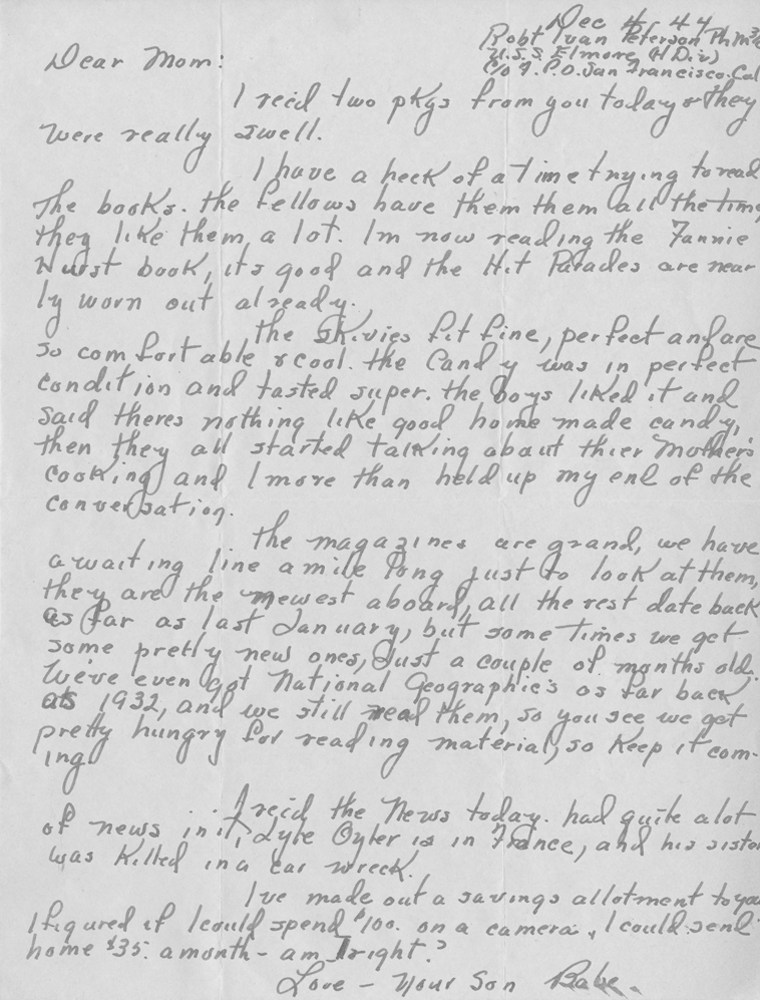 Dec 4, 44
Robt Ivan Peterson PhM3/c
U.S.S. Elmore (H Div)
c/o F.P.O. San Francisco. Cal
Dear Mom:
I rec'd two pkgs from you today & they
were really swell.
I have a heck of a time trying to read
The books. the fellows have them them all the time
they like them a lot. Im now reading the Fannie
Hurst book, its good and the Hit Parades are near
ly worn out already.
the skivies fit fine, perfect and are
so comfortable & cool. the Candy was in perfect
condition and tasted super. the boys liked it and
said theres nothing like good home made candy,
then they all started talking about thier Mother's
cooking and I more than held up my end of the
conversation.
the magazines are grand, we have
a waiting line a mile long just to look at them,
they are the newest aboard, all the rest date back
as far as last January, but some times we get
some pretty new ones, Just a couple of months old.
We've even got National Geographic's as far back
as 1932, and we still read them, so you see we get
pretty hungry for reading material, so Keep it com-
ing
I rec'd the News today. had quite a lot
of news in it, Lyle Oyler is in France, and his sister
was Killed in a car wreck.
I've made out a savings allotment to you
I figured if I could spend $100. on a camera, I could send
home $35. a month - am I right?
Love - Your Son Babe.